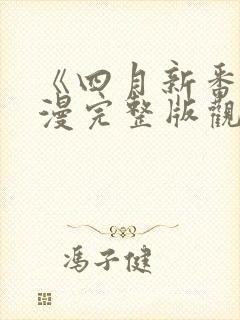 《四月新番
漫完整版觀
馮子健